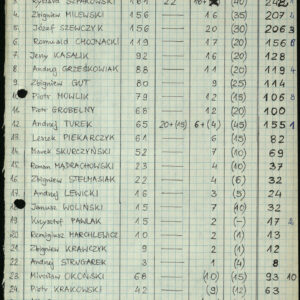 3. Ryszard SZPAKOWSKI 161 22 18+ (40)
4. Zbigniew MILEWSKI 156 — 16 (35) 207
5. Józef SZEWCZYK 156 — 15 (35) 206
6. Romuald CHOJNACKI 119 — 17 (20) 156
7. Jerzy KASALIK 92 — 16 (20) 128
8. Andrzej GRZEŚKOWIAK 88 — 11 (20) 119
9. Zbigniew GUT 80 — 9 (25) 114
10. Piotr MOWLIK 79 — 12 (15) 106
11. Piotr GROBELNY 68 — 12 (20) 100
12. Andrzej TUREK 65 20+(15) 6+(4) (45) 155
13. Leszek PIEKARCZYK 61 — 6 (15) 82
14. Marek SKURCZYŃSKI 52 — 7 (10) 69
15. Roman MĄDRACHOWSKI 23 — 4 (10) 37
16. Zbigniew STELMASIAK 22 — 4 (6) 32
17. Andrzej LEWICKI 16 — 3 (5) 24
18. Janusz WOLIŃSKI 15 — 7 (10) 32
19. Krzysztof PAWLAK 15 — 2 (–) 17
20. Remigiusz MARCHLEWICZ 10 — 1 (2) 13
21. Zbigniew KRAWCZYK 9 — 1 (2) 12
22. Andrzej STRUGAREK 3 — 1 (4) 8
23. Mirosław OKOŃSKI 68 — (10) (15) 93
24. Piotr KRAKOWSKI 42 — (9) (12) 63